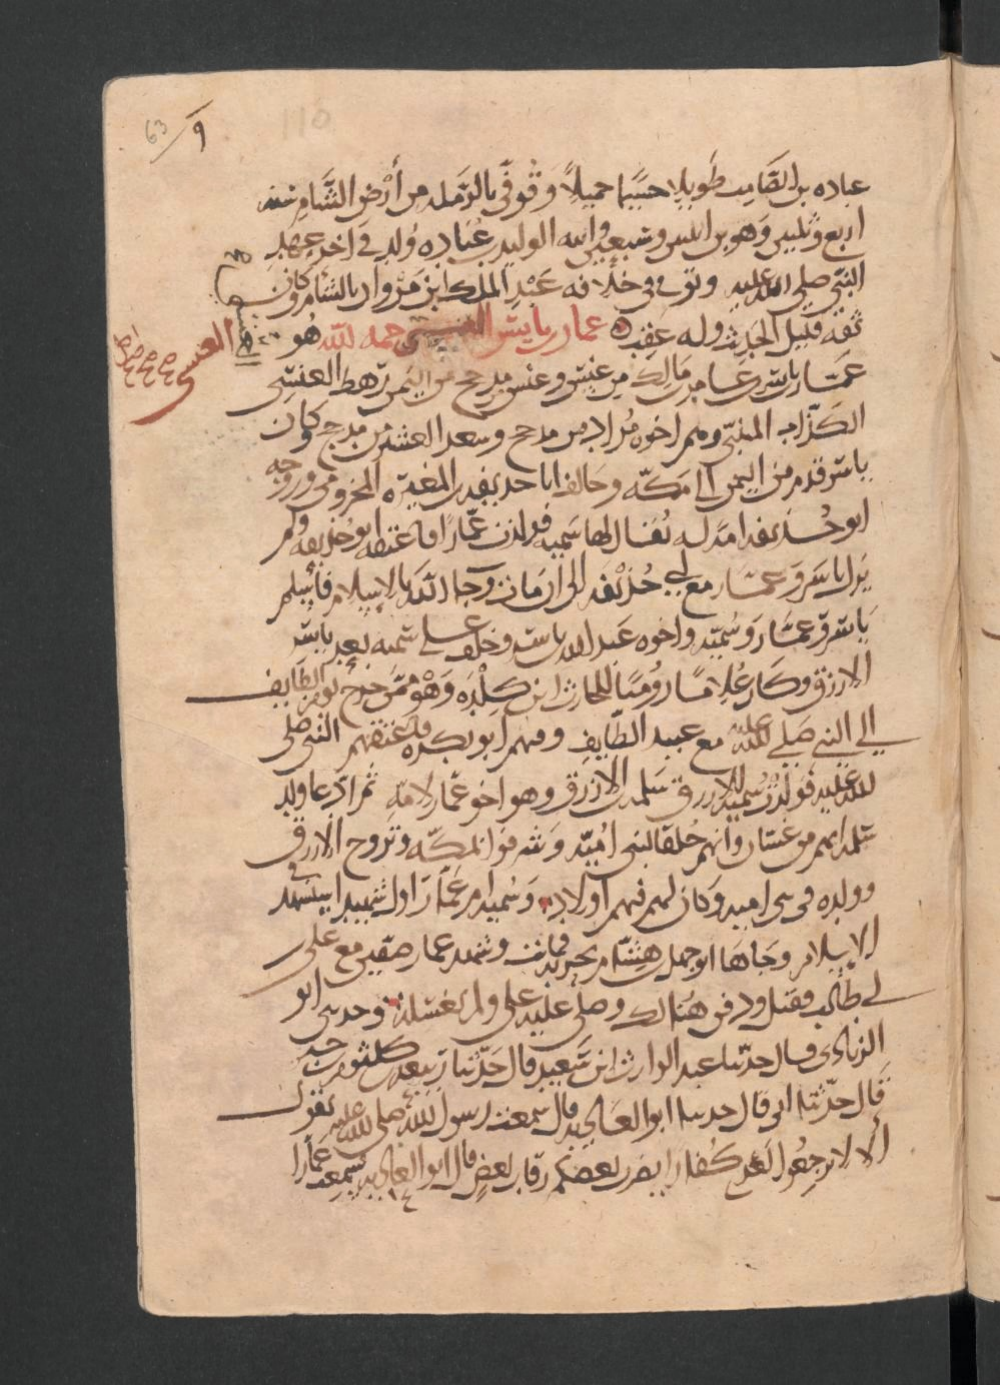 63/9
110
عباده بن الصامت طويلا حسيبا جميلاً وتوفى بالرمله من أرض الشام سنه
اربع وثلثين وهو بن اثنين وسبعين وابنه الوليد بن عُباده وُلد في اخر عهد
النبي صلى الله عليه وتوفى في خلافه عَبْد الملك ابن مَرْوان بالشام وكان
ثقه قليل الحديث وله عقب ه عمار بن ياسر العنسي رحمه الله هو
العنسي صح صح صح صح
عمّار بن ياسر بن عامر بن مالك من عنس وعنس من مدحج من اليمن رهط العنسى
الكذّاب المتنبّي ومهم اخوه مُراد من مدحج وسعد العشيره من مدحج وكان
ياسر قدم من اليمن الى مكّه وحالف ابا حذيفه بن المغيره المخزومى وزوجه
ابو حُذيفه امة له يُقال لها سُميه فولدت عمّارًا فاعتقه ابو حُذيفه ولم
يزل ياسر وعمّار مع ابي حُذيفه الى ان مات وجا الله بالاسلام فأسلم
ياسر وعمّار وسُميّه واخوه عبد الله بن ياسر وخلف على سُميه بعد ياسر
الازرق وكان غُلامًا رُوميًا للحارث ابن كِلْدَه وَهْو ممّن خرج يوم الطايف
الى النبي صلى الله عليه مع عبيد الطّايف ومنهم ابو بكره فاعتقهم النبي صلى
الله عليه فولدت سُميه للازرق سلمه بن الازرق وهو اخو عمّار لامه ثم ادّعا ولد
سلمه انهم من غسّان وانهم حُلفا لبنى اُميّه وشرفوا بمكّه وتزوج الازرق
وولده في بنى اميه وكان لهم فيهم اولاد وسُميه ام عمّار اول شهيد استشهد في
الاسلام وجاها ابو جهل بن هشام بحربه فماتت وشهد عمار صفّين مع على بن
ابي طالب فقتل ودفن هُنالك وصلى عليه على ولم يغسله وحدثنى ابو
الزيادى قال حدثنا عبد الوارث ابن سَعيد قال حَدّثنا ربيعه بن كلثوم بن جبر
قال حدّثنا ابى قال حدثنا ابو العاديه قال سمعت رسول الله صلى الله عليه يقول
ألا لا ترجعوا بعدى كفارا يضرب بعضكم رقاب بعضٍ قال ابو العاديه وسمعت عمّارا